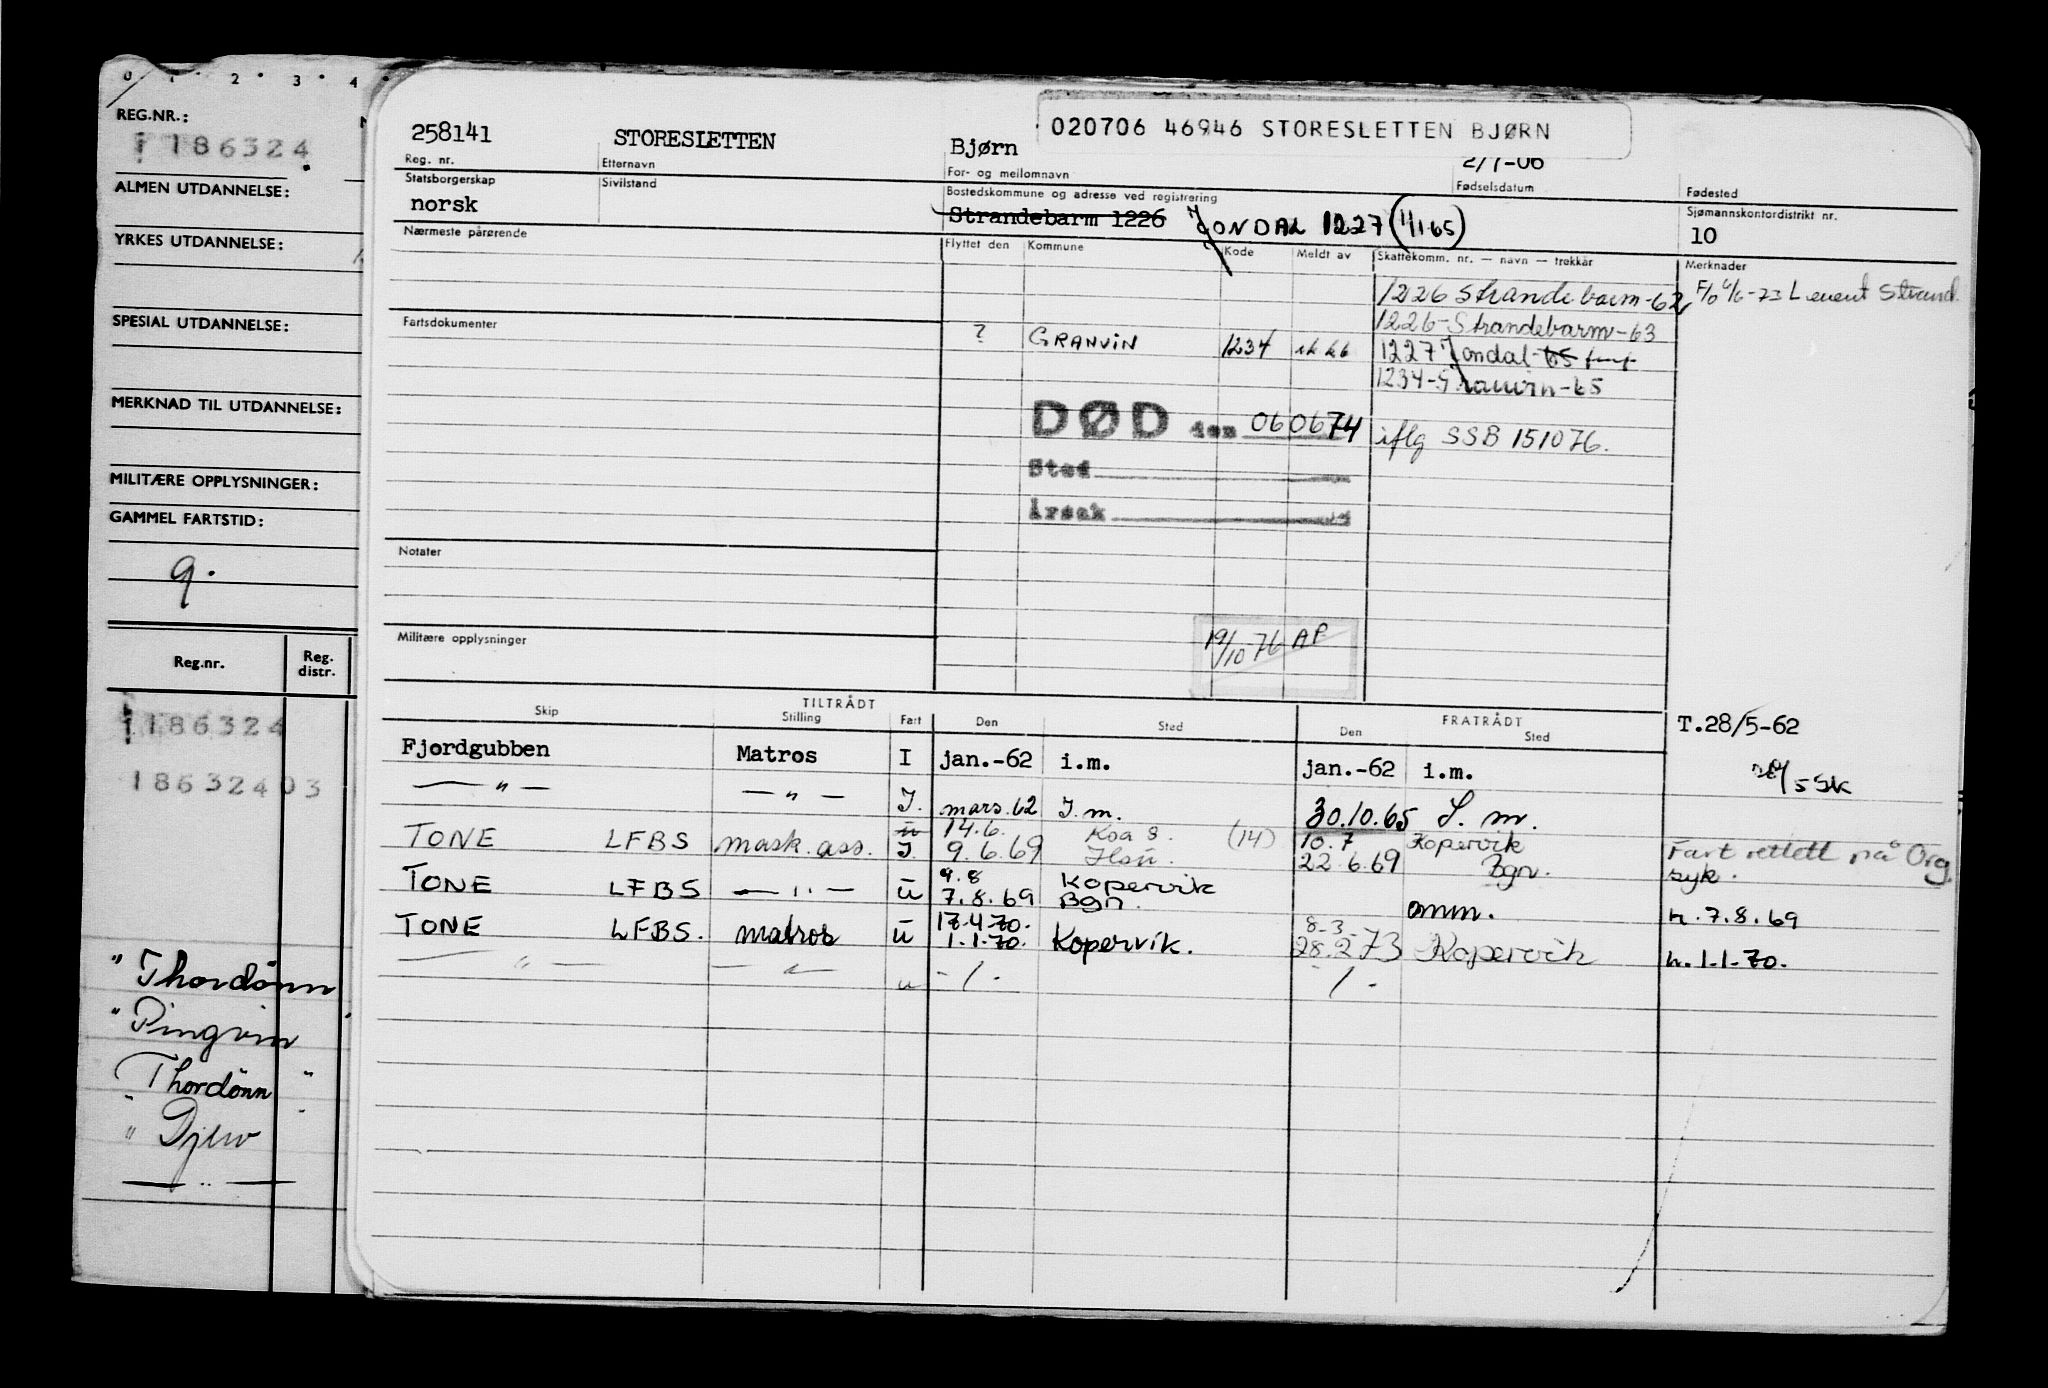 0 1 2 3 4
REG.NR.:
186324
ALMEN UTDANNELSE:
YRKES UTDANNELSE:
SPESIAL UTDANNELSE:
MERKNAD TIL UTDANNELSE:
MILITÆRE OPPLYSNINGER:
GAMMEL FARTSTID:
9.
Reg.nr. Reg. distr.
186324
186324 03
" Thordønn
" Pingvin
Thordønn "
" Djerv
— " —
020706 46946 STORESLETTEN BJØRN
258141 STORESLETTEN Bjørn 2/7-06
Reg. nr. Etternavn For- og mellomnavn Fødselsdatum Fødested
Statsborgerskap Sivilstand Bostedskommune og adresse ved registrering Sjømannskontordistrikt nr.
norsk Strandebarm 1226 JONDAL 1227 (1/1 65) 10
Nærmeste pårørende Flyttet den Kommune Kode Meldt av Skattekomm. nr. — navn — trekkår Merknader
1226 Strandebarm-62 F/O 4/6-73 Levert Strand
1226-Strandebarm-63
Fartsdokumenter ? GRANVIN 1234 1227 Jondal-65
1234-Granvin-65
DØD den 060674 iflg SSB 151076.
Sted
Årsak
Notater
Militære opplysninger 19/10-76 AP
TILTRÅDT FRATRÅDT
Skip Stilling Fart Den Sted Den Sted T.28/5-62
Fjordgubben Matros I jan.-62 i.m. jan.-62 i.m.
— " — — " — I. mars.62 I.m. 30.10.65 I.m.
14.6. (14) 10.7 Kopervik
TONE LFBS mask.ass. I 9.6.69 22.6.69 Bgn. Fart rettett på Org. syk.
9.8 Kopervik
TONE LFBS — " — u 7.8.69 Bgn. omm. h.7.8.69
17.4.70. 8-3-
TONE LFBS. matros u 1.1.70. Kopervik. 28.2.73 Kopervik h.1.1.70.
— " — — " — u -/- -/-